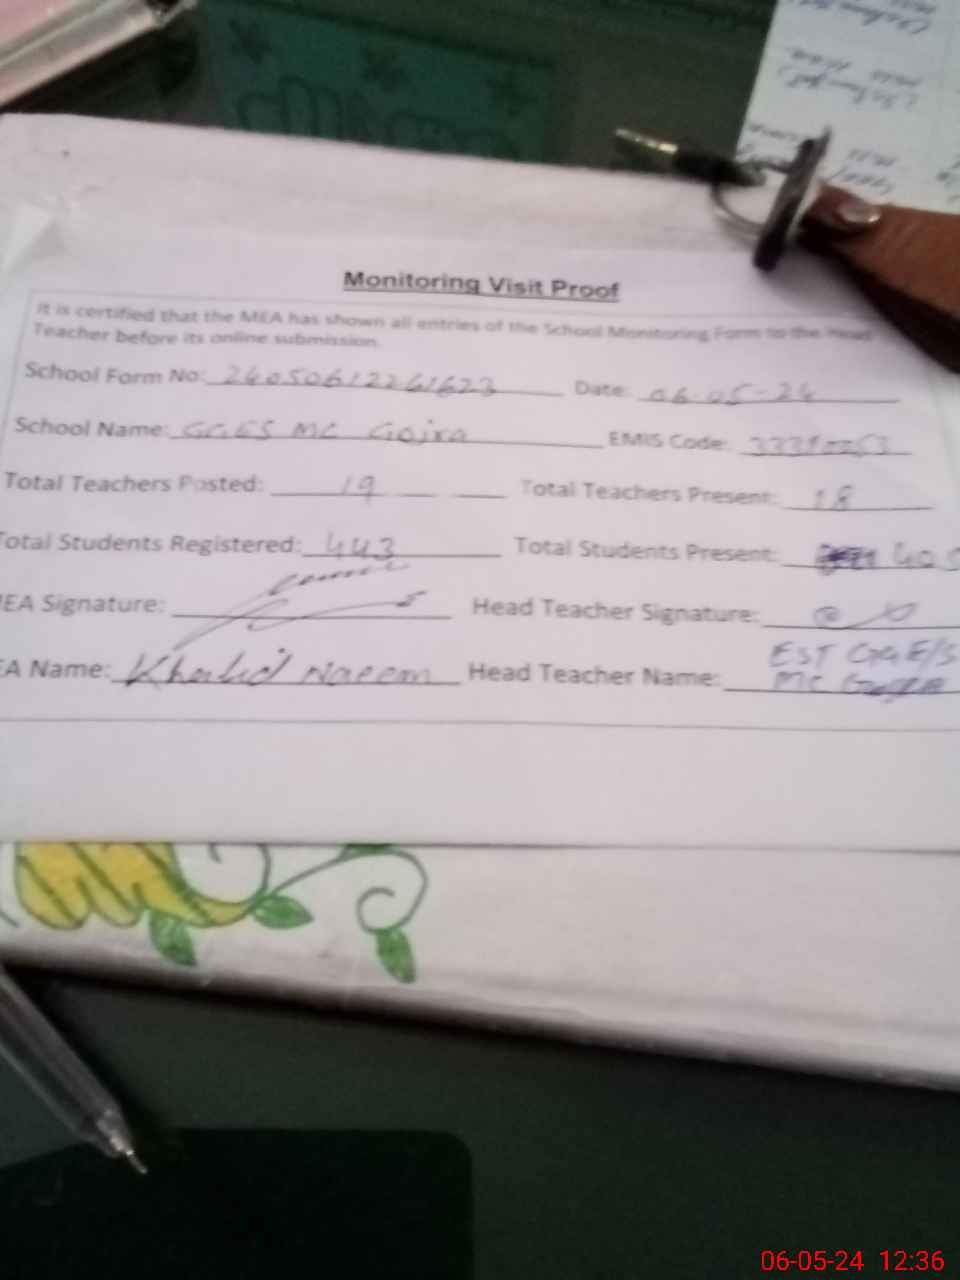 Monitoring Visit Proof
It is certified that the MEA has shown all entries of the School Monitoring Form to the Head
Teacher before its online submission.
School Form No: 24050612261623 Date: 06-05-24
School Name: GGES MC Gojra EMIS Code:
Total Teachers Posted: 19 Total Teachers Present: 18
Total Students Registered: 443 Total Students Present: 405
MEA Signature: Head Teacher Signature:
EA Name: Khalid Naeem Head Teacher Name: EST GGE/S
MC
06-05-24 12:36